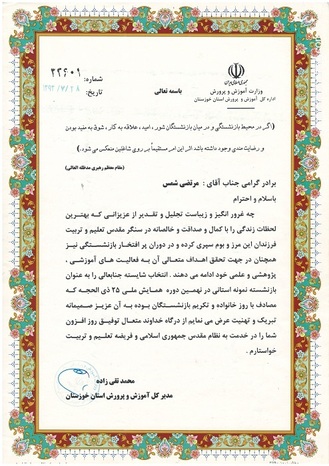 شماره: ۲۲۶۰۹
تاریخ:
باسمه تعالی
جمهوری اسلامی ایران
وزارت آموزش و پرورش
اداره کل آموزش و پرورش استان خوزستان
(اگر در محیط بازنشستگی و در میان بازنشستگان شور ، امید ، علاقه به کار ، شوق به مفید بودن
و رضایت مندی وجود داشته باشد اثر این امر مستقیماً بر روی شاغلین منعکس می شود.)
(مقام معظم رهبری مدظله العالی)
برادر گرامی جناب آقای : مرتضی شمس
باسلام و احترام
چه غرور انگیز و زیباست تجلیل و تقدیر از عزیزانی که بهترین
لحظات زندگی را با کمال و صداقت و خالصانه در سنگر مقدس تعلیم و تربیت
فرزندان این مرز و بوم سپری کرده و در دوران پر افتخار بازنشستگی نیز
همچنان در جهت تحقق اهداف متعالی آن به فعالیت های آموزشی ،
پژوهشی و علمی خود ادامه می دهند . انتخاب شایسته جنابعالی را به عنوان
بازنشسته نمونه استانی در نهمین دوره همایش ملی ۲۵ ذی الحجه که
مصادف با روز خانواده و تکریم بازنشستگان بوده به آن عزیز صمیمانه
تبریک و تهنیت عرض می نمایم از درگاه خداوند متعال توفیق روز افزون
شما را در خدمت به نظام مقدس جمهوری اسلامی و فریضه تعلیم و تربیت
خواستارم .
محمد تقی زاده
مدیر کل آموزش و پرورش استان خوزستان